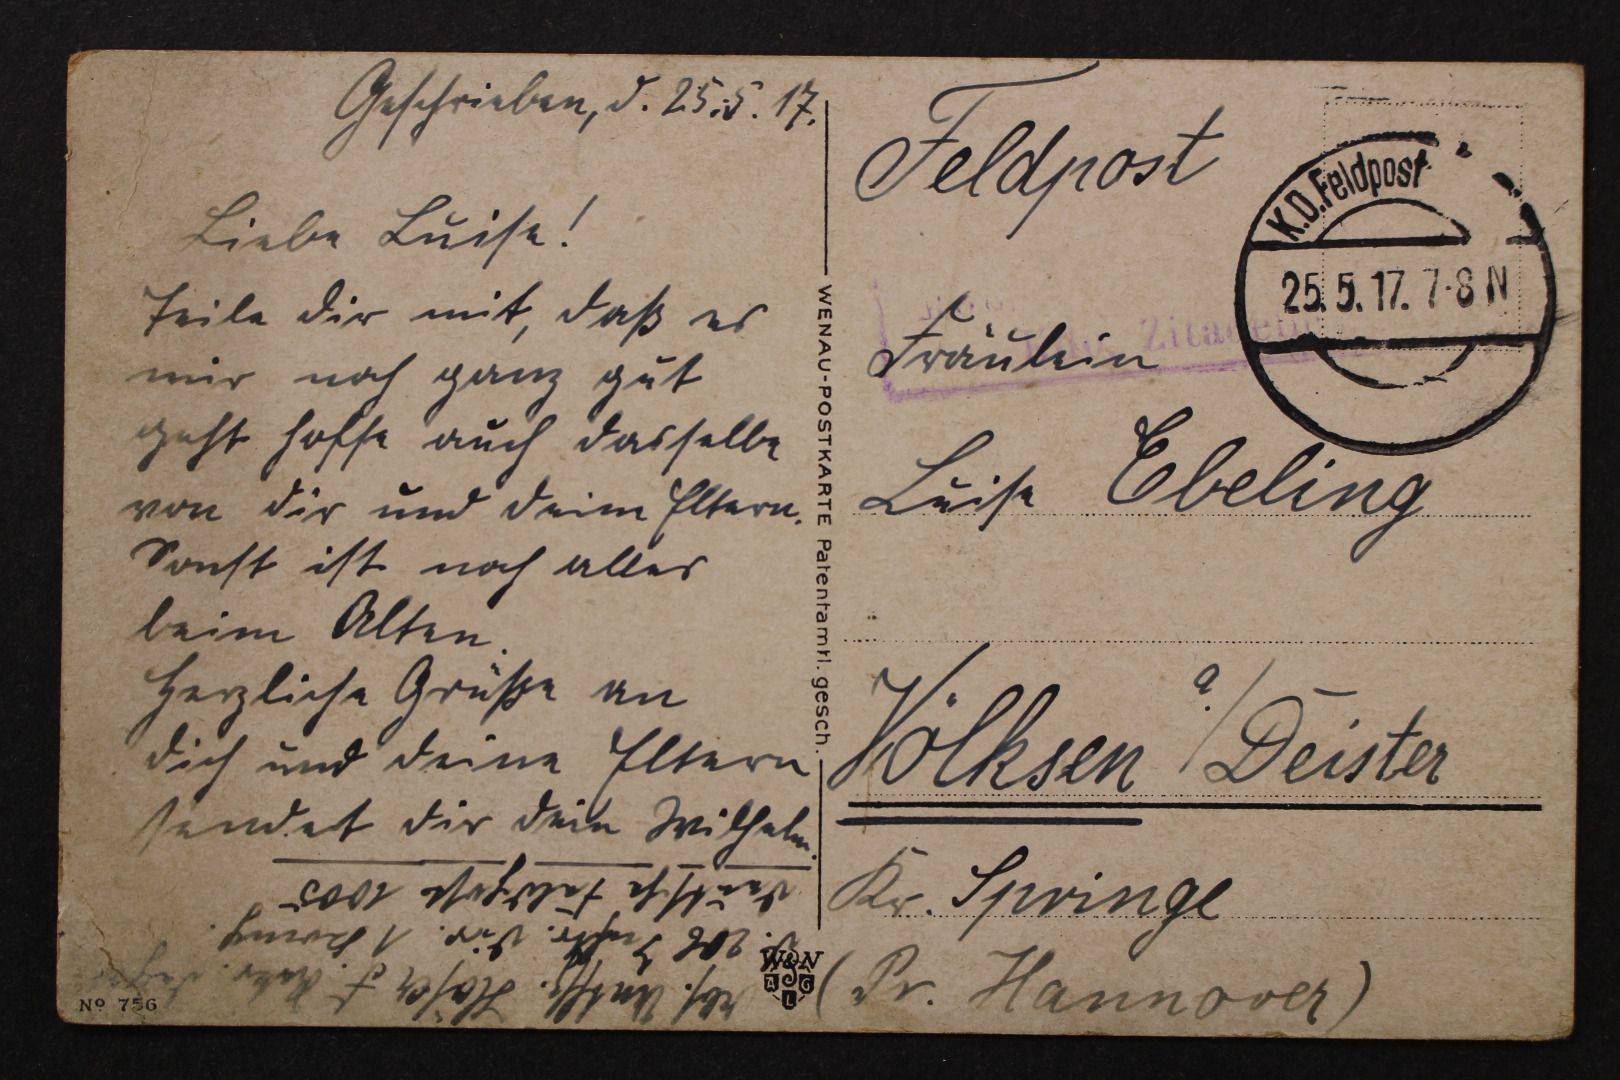 Geschrieben, d. 25.5.17.
Liebe Luise!
Teile dir mit, daß es
mir noch ganz gut
geht hoffe auch dasselbe
von dir und deinen Eltern.
Sonst ist noch alles
beim Alten.
Herzliche Grüße an
dich und deine Eltern
sendet dir dein Wilhelm.
Deutsche Feldpost 1005
WENAU-POSTKARTE Patentamtl. gesch.
W&N
ALG
No 756
Feldpost
K.D. Feldpost
25.5.17. 7-8 N
Zitadelle
Fräulein
Luise Ebeling
Völksen a/Deister
Kr. Springe
(Pr. Hannover)